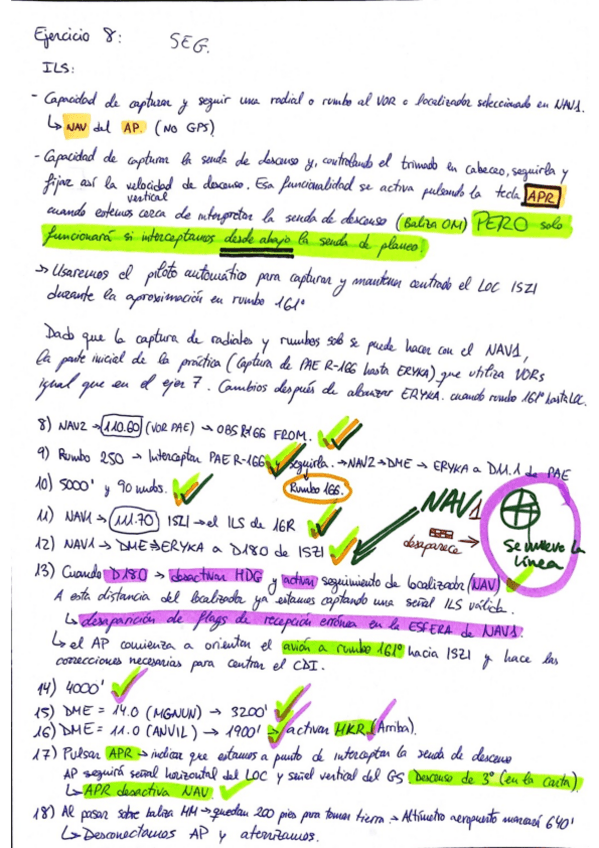 Ejercicio 8: SEG.
ILS:
- Capacidad de capturar y seguir una radial o rumbo al VOR o localizador seleccionado en NAV1.
↳ NAV del AP. (NO GPS)
- Capacidad de capturar la senda de descenso y, controlando el trimado en cabeceo, seguirla y
fijar así la velocidad de descenso. Esa funcionalidad se activa pulsando la tecla APR
vertical
cuando estemos cerca de interceptar la senda de descenso (Baliza OM) PERO solo
funcionará si interceptamos desde abajo la senda de planeo.
→ Usaremos el piloto automático para capturar y mantener centrado el LOC ISZI
durante la aproximación en rumbo 161º
Dado que la captura de radiales y rumbos solo se puede hacer con el NAV1,
la parte inicial de la práctica (captura de PAE R-166 hasta ERYKA) que utiliza VORs
igual que en el ejer 7. Cambios después de alcanzar ERYKA. cuando rumbo 161º hasta LOC.
8) NAV2 → 110.60 (VOR PAE) → OBS R166 FROM.
9) Rumbo 250 → Interceptar PAE R-166 y seguirla. → NAV2 → DME → ERYKA a D11.1 de PAE
10) 5000' y 90 nudos. Rumbo 166.
11) NAV1 → 111.70 ISZI → el ILS de 16R
12) NAV1 → DME → ERYKA a D18.0 de ISZI
NAV1
desaparece
se mueve la
línea
13) Cuando D18.0 → desactivar HDG y activar seguimiento de localizador (NAV)
A esta distancia del localizador ya estamos captando una señal ILS válida.
↳ desaparición de flags de recepción errónea en la ESFERA de NAV1.
↳ el AP comienza a orientar el avión a rumbo 161º hacia ISZI y hace las
correcciones necesarias para centrar el CDI.
14) 4000'
15) DME = 14.0 (MGNUN) → 3200'
16) DME = 11.0 (ANVIL) → 1900' → activar MKR (Arriba).
17) Pulsar APR → indicar que estamos a punto de interceptar la senda de descenso
AP seguirá señal horizontal del LOC y señal vertical del GS. Descenso de 3º (en la carta).
↳ APR desactiva NAV.
18) Al pasar sobre baliza MM → quedan 200 pies para tomar tierra. → Altímetro aeropuerto marcará 640'
↳ Desconectamos AP y aterrizamos.